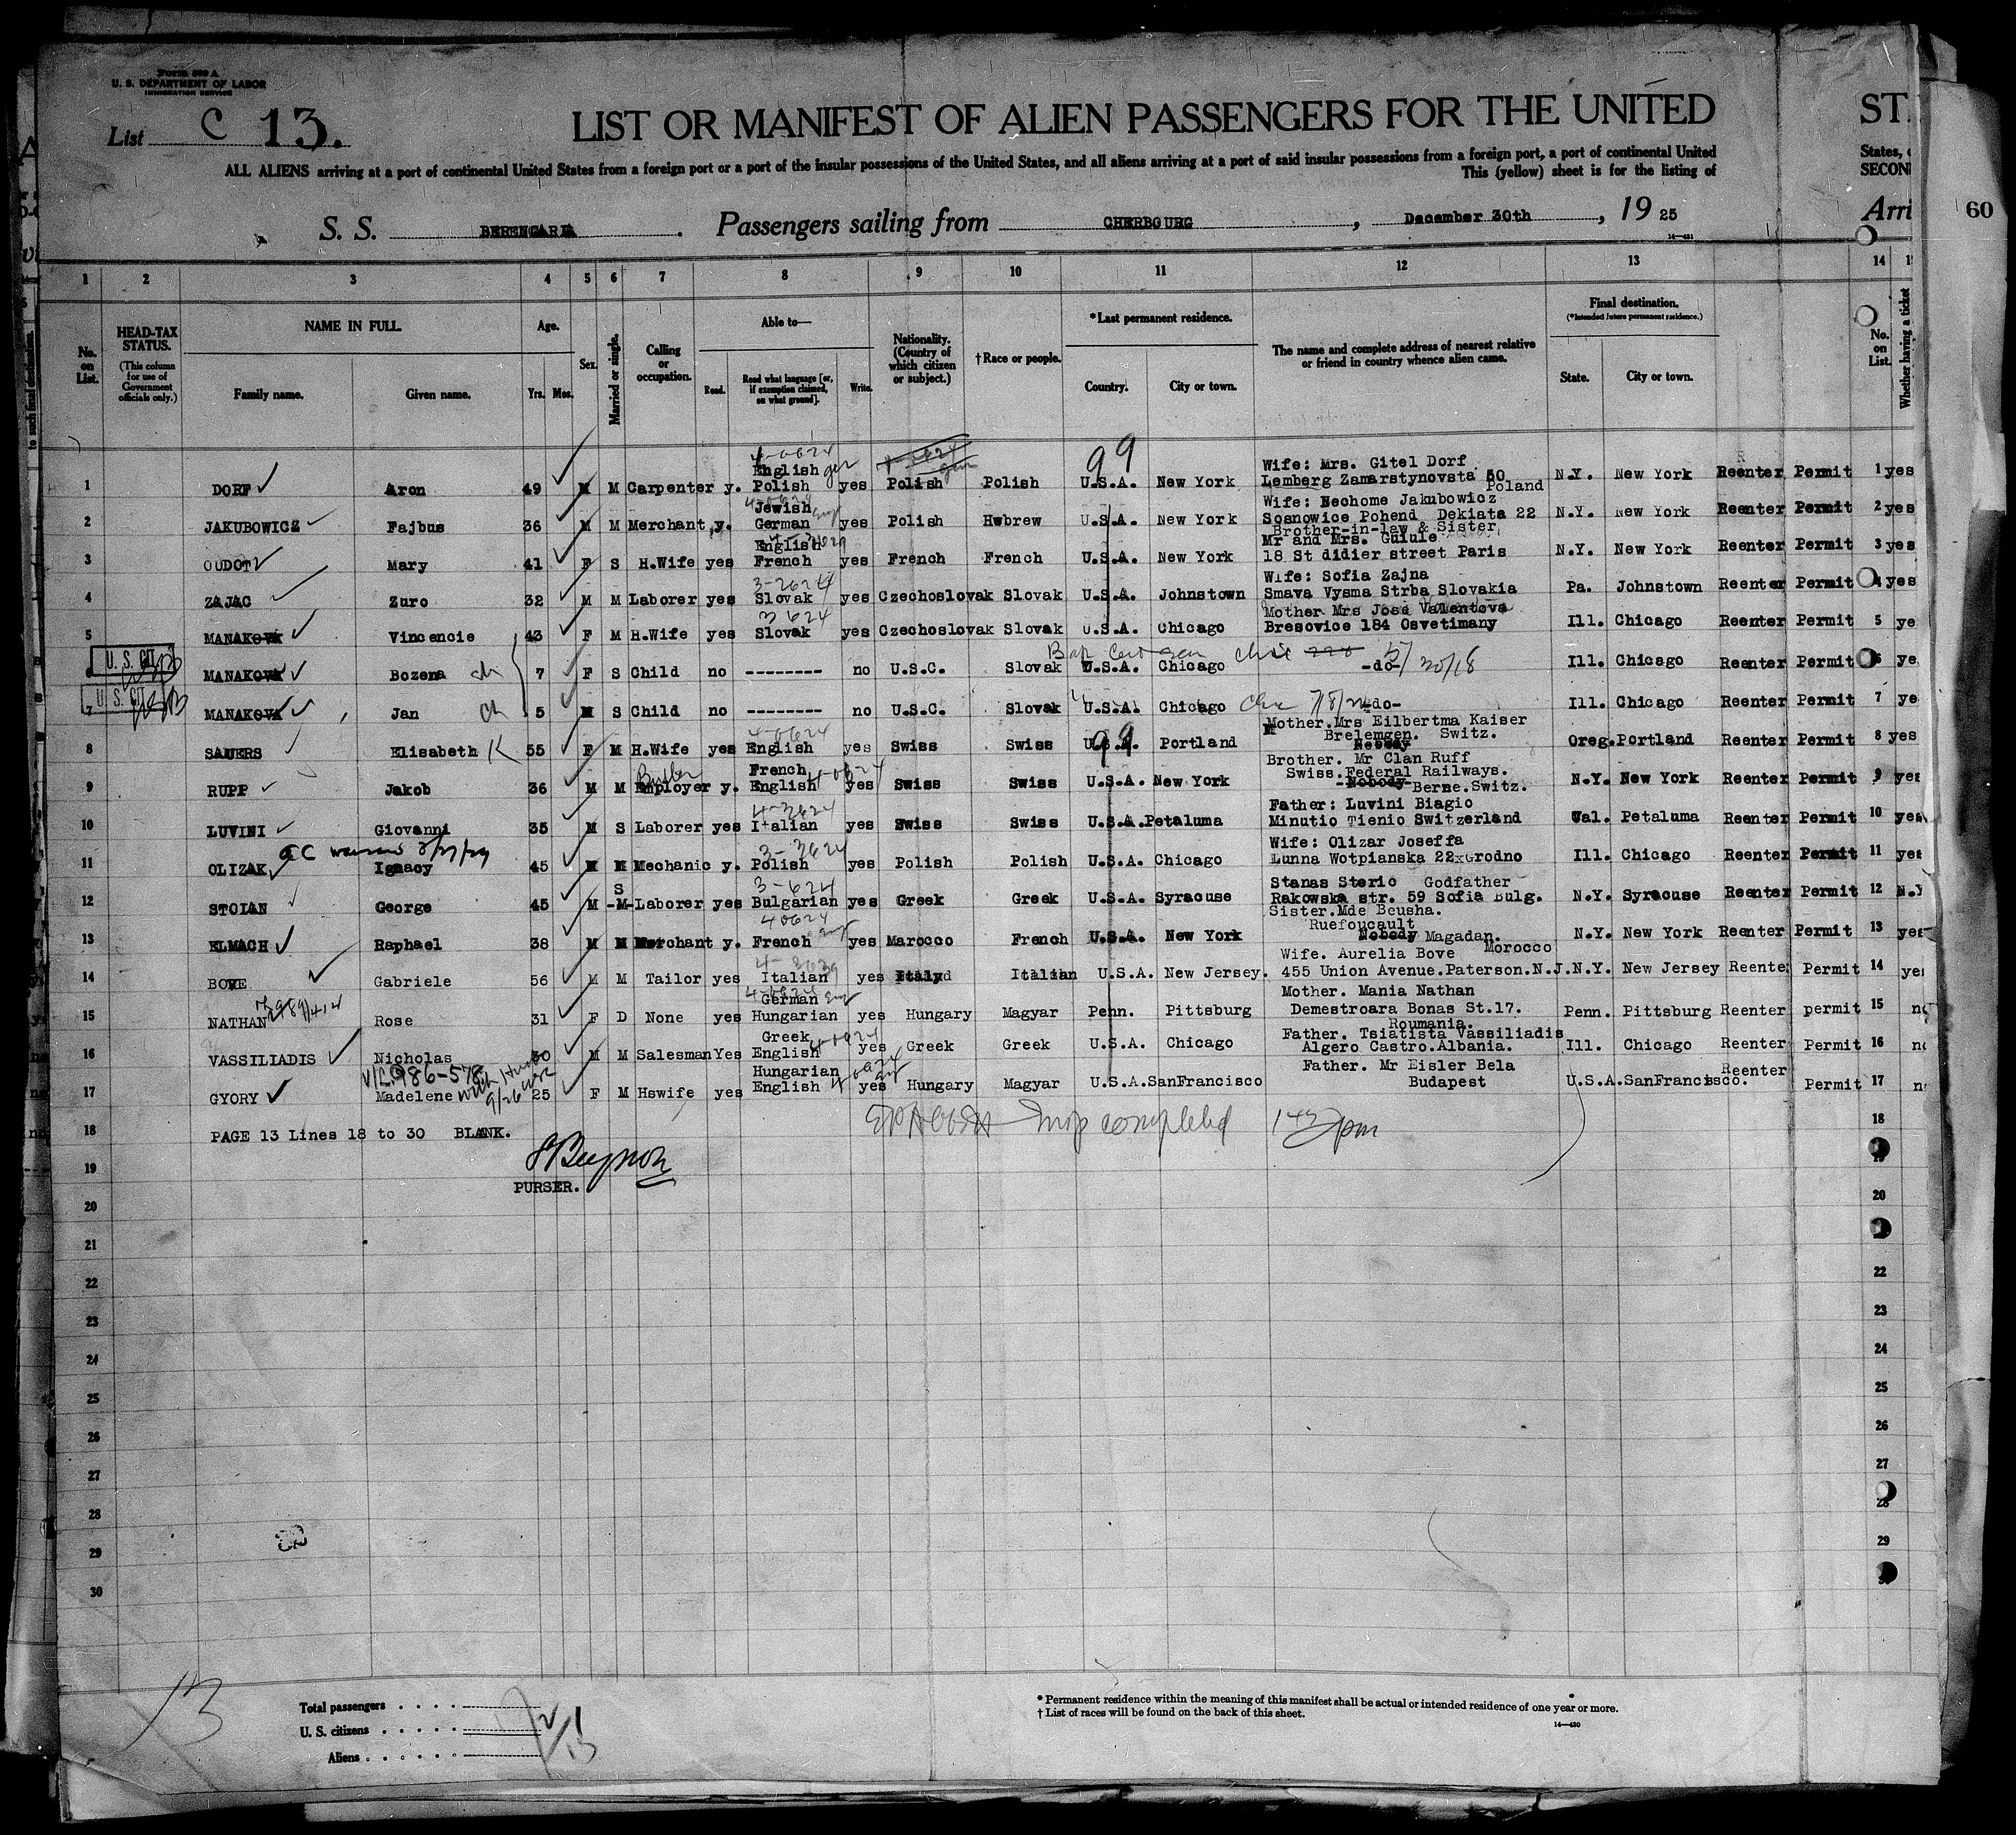 Form 500 A
U. S. DEPARTMENT OF LABOR
IMMIGRATION SERVICE
List C 13.
LIST OR MANIFEST OF ALIEN PASSENGERS FOR THE UNITED ST
ALL ALIENS arriving at a port of continental United States from a foreign port or a port of the insular possessions of the United States, and all aliens arriving at a port of said insular possessions from a foreign port, a port of continental United States,
This (yellow) sheet is for the listing of SECON
S. S. BERENGARIA. Passengers sailing from CHERBOURG, December 30th, 1925 Arri 60
14—431
1 2 3 4 5 6 7 8 9 10 11 12 13 14
No. on List.
HEAD-TAX STATUS. (This column for use of Government officials only.)
NAME IN FULL. Family name. Given name.
Age. Yrs. Mos.
Sex.
Married or single.
Calling or occupation.
Able to— Read. Read what language [or, if exemption claimed, on what ground]. Write.
Nationality. (Country of which citizen or subject.)
†Race or people.
*Last permanent residence. Country. City or town.
The name and complete address of nearest relative or friend in country whence alien came.
Final destination. (*Intended future permanent residence.) State. City or town.
No. on List.
Whether having a ticket
99
1 DORF Aron 49 M M Carpenter y. English Polish yes Polish Polish U.S.A. New York Wife: Mrs. Gitel Dorf Lemberg Zamarstynovsta 50 Poland N.Y. New York Reenter Permit 1 yes
2 JAKUBOWICZ Fajbus 36 M M Merchant y. Jewish German yes Polish Hwbrew U.S.A. New York Wife: Nechome Jakubowicz Sosnowice Pohend Dekiata 22 N.Y. New York Reenter Permit 2 yes
3 OUDOT Mary 41 F S H.Wife yes English French yes French French U.S.A. New York Brother-in-law & Sister Mr and Mrs. Guiule 18 St didier street Paris N.Y. New York Reenter Permit 3 yes
4 ZAJAC Zuro 32 M M Laborer yes Slovak yes Czechoslovak Slovak U.S.A. Johnstown Wife: Sofia Zajna Smava Vysma Strba Slovakia Pa. Johnstown Reenter Permit 4 yes
5 MANAKOVA Vincencie 43 F M H.Wife yes Slovak yes Czechoslovak Slovak U.S.A. Chicago Mother Mrs Josa Valentova Bresovice 184 Osvetimany Ill. Chicago Reenter Permit 5 ye
U. S. CIT.
MANAKOVA Bozena ch 7 F S Child no -------- no U.S.C. Slovak U.S.A. Chicago -do- 5/30/18 Ill. Chicago Reenter Permit ye
U. S. CIT.
7 MANAKOVA Jan ch 5 M S Child no -------- no U.S.C. Slovak U.S.A. Chicago -do- Ill. Chicago Reenter Permit 7 ye
8 SAUERS Elisabeth K 55 F M H.Wife yes English yes Swiss Swiss U.S.A. Portland Mother.Mrs Eilbertma Kaiser Brelemgen. Switz. Nobody Oreg. Portland Reenter Permit 8 yes
9 RUPP Jakob 36 M M Employer Butler y. French English yes Swiss Swiss U.S.A. New York Brother. Mr Clan Ruff Swiss.Federal Railways. -Nobody- Berne.Switz. N.Y. New York Reenter Permit 9 yes
10 LUVINI Giovanni 35 M S Laborer yes Italian yes Swiss Swiss U.S.A. Petaluma Father: Luvini Biagio Minutio Tienio Switzerland Cal. Petaluma Reenter Permit 10 yes
11 OLIZAK Ignacy 45 M M Mechanic y. Polish yes Polish Polish U.S.A. Chicago Wife: Olizar Joseffa Lunna Wotpianska 22xGrodno Ill. Chicago Reenter Permit 11 yes
12 STOIAN George 45 M S -M- Laborer yes Bulgarian yes Greek Greek U.S.A. Syracuse Stanas Steric Godfather Rakowska str. 59 Sofia Bulg. N.Y. Syracuse Reenter Permit 12 N.Y
13 ELMACH Raphael 38 M M Merchant y. French yes Marocco French U.S.A. New York Sister.Mde Beusha. Ruefoucault Nobody Magadan. Morocco N.Y. New York Reenter Permit 13 yes
14 BOVE Gabriele 56 M M Tailor yes Italian yes Italy Italian U.S.A. New Jersey. Wife. Aurelia Bove 455 Union Avenue.Paterson.N.J. N.Y. New Jersey Reenter Permit 14 ye
15 NATHAN Rose 31 F D None yes German Hungarian yes Hungary Magyar Penn. Pittsburg Mother. Mania Nathan Demestroara Bonas St.17. Roumania. Penn. Pittsburg Reenter permit 15 no
16 VASSILIADIS Nicholas 30 M M Salesman Yes Greek English yes Greek Greek U.S.A. Chicago Father. Tsiatista Vassiliadis Algero Castro.Albania. Ill. Chicago Reenter Permit 16 no
17 GYORY Madelene 25 F M Hswife yes Hungarian English yes Hungary Magyar U.S.A. SanFrancisco Father. Mr Eisler Bela Budapest U.S.A. SanFrancisco. Reenter Permit 17 n
18 PAGE 13 Lines 18 to 30 BLANK. 18
19
PURSER.
20 20
21
22 22
23 23
24 24
25 25
26 26
27 27
28 28
29 29
30
13
Total passengers
U. S. citizens
Aliens
* Permanent residence within the meaning of this manifest shall be actual or intended residence of one year or more.
† List of races will be found on the back of this sheet.
14—430